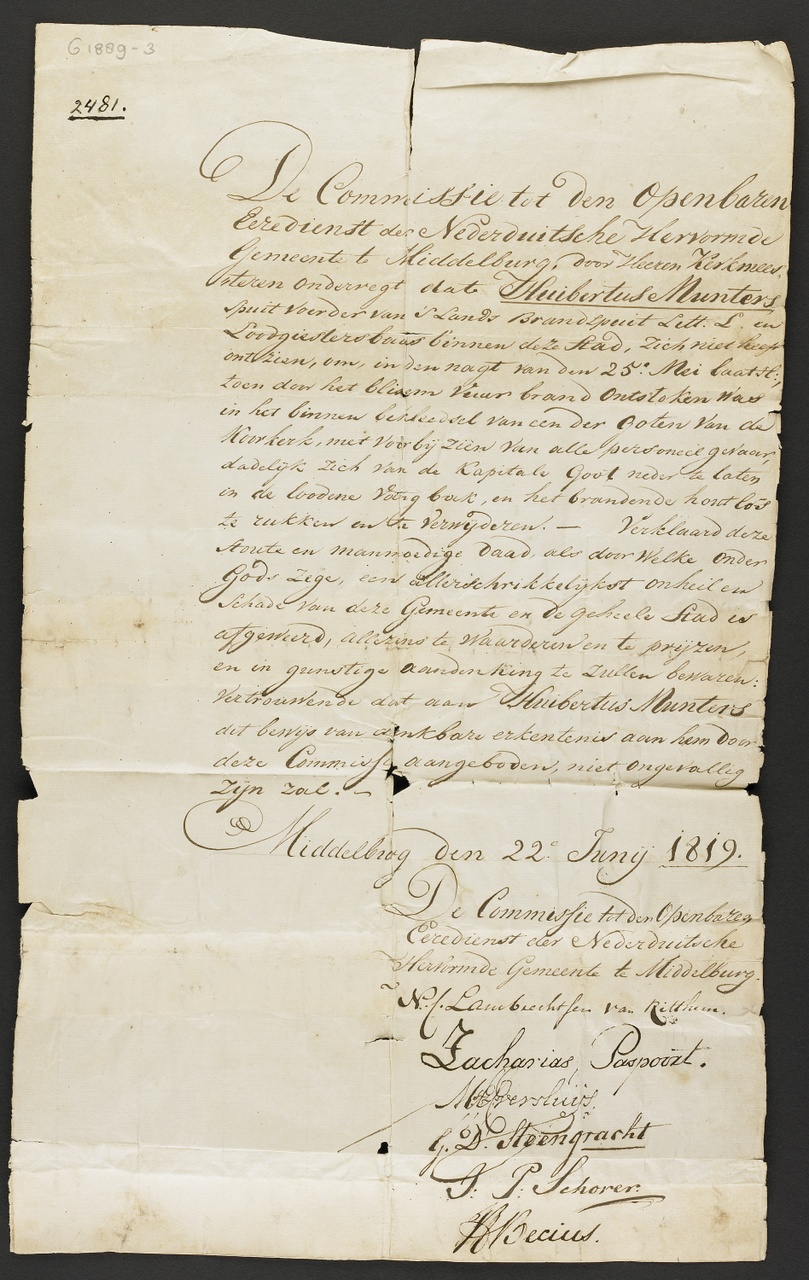 G 1889-3
2481.
De Commissie tot den Openbaren
Eeredienst der Nederduitsche Hervormde
Gemeente te Middelburg, door Heeren Kerkmees,
steren onderregt dat Huibertus Munters
spuit voerder van 's Lands Brandspuit Lett. L. en
Loodgietersbaas binnen deze Stad, zich niet heeft
ontzien, om, in den nagt van den 25e Mei laatstl:
toen door het blixem vuur brand ontstoken was
in het binnen bekleedsel van een der Goten van de
Koorkerk, met voorbij zien van alle personeel gevaar,
dadelijk zich van de Kapitale Goot neder te laten
in de loodene Vang bak, en het brandende hout los
te rukken en te verwijderen. — Verklaard deze
stoute en manmoedige daad, als door welke onder
Gods Zege, een allerschrikkelijkst onheil en
schade van deze Gemeente en de geheele Stad is
afgeweerd, allezins te waarderen en te prijzen,
en in gunstige aandenking te zullen bewaren:
Vertrouwende dat aan Huibertus Munters
dit bewijs van dankbare erkentenis aan hem door
deze Commissie aangeboden, niet ongevallig
zijn zal. —
Middelburg den 22e Junij 1819.
De Commissie tot den Openbaren
Eeredienst der Nederduitsche
Hervormde Gemeente te Middelburg.
N. C. Lambrechtsen van Ritthem.
Zacharias Paspoort.
Versluijs.
G. D. Steengracht
J. P. Schorer.
Becius.